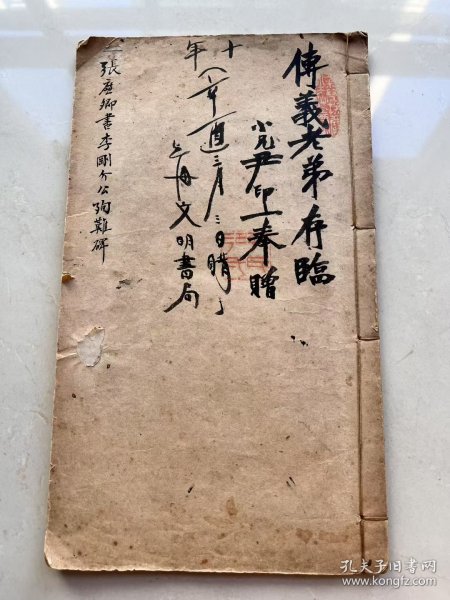 傳義老弟存臨
小兄尹印一奉贈
十年
三月三日購
上海文明書局
張廉卿書李剛介公殉難碑
孔夫子旧书网
www.kongfz.com